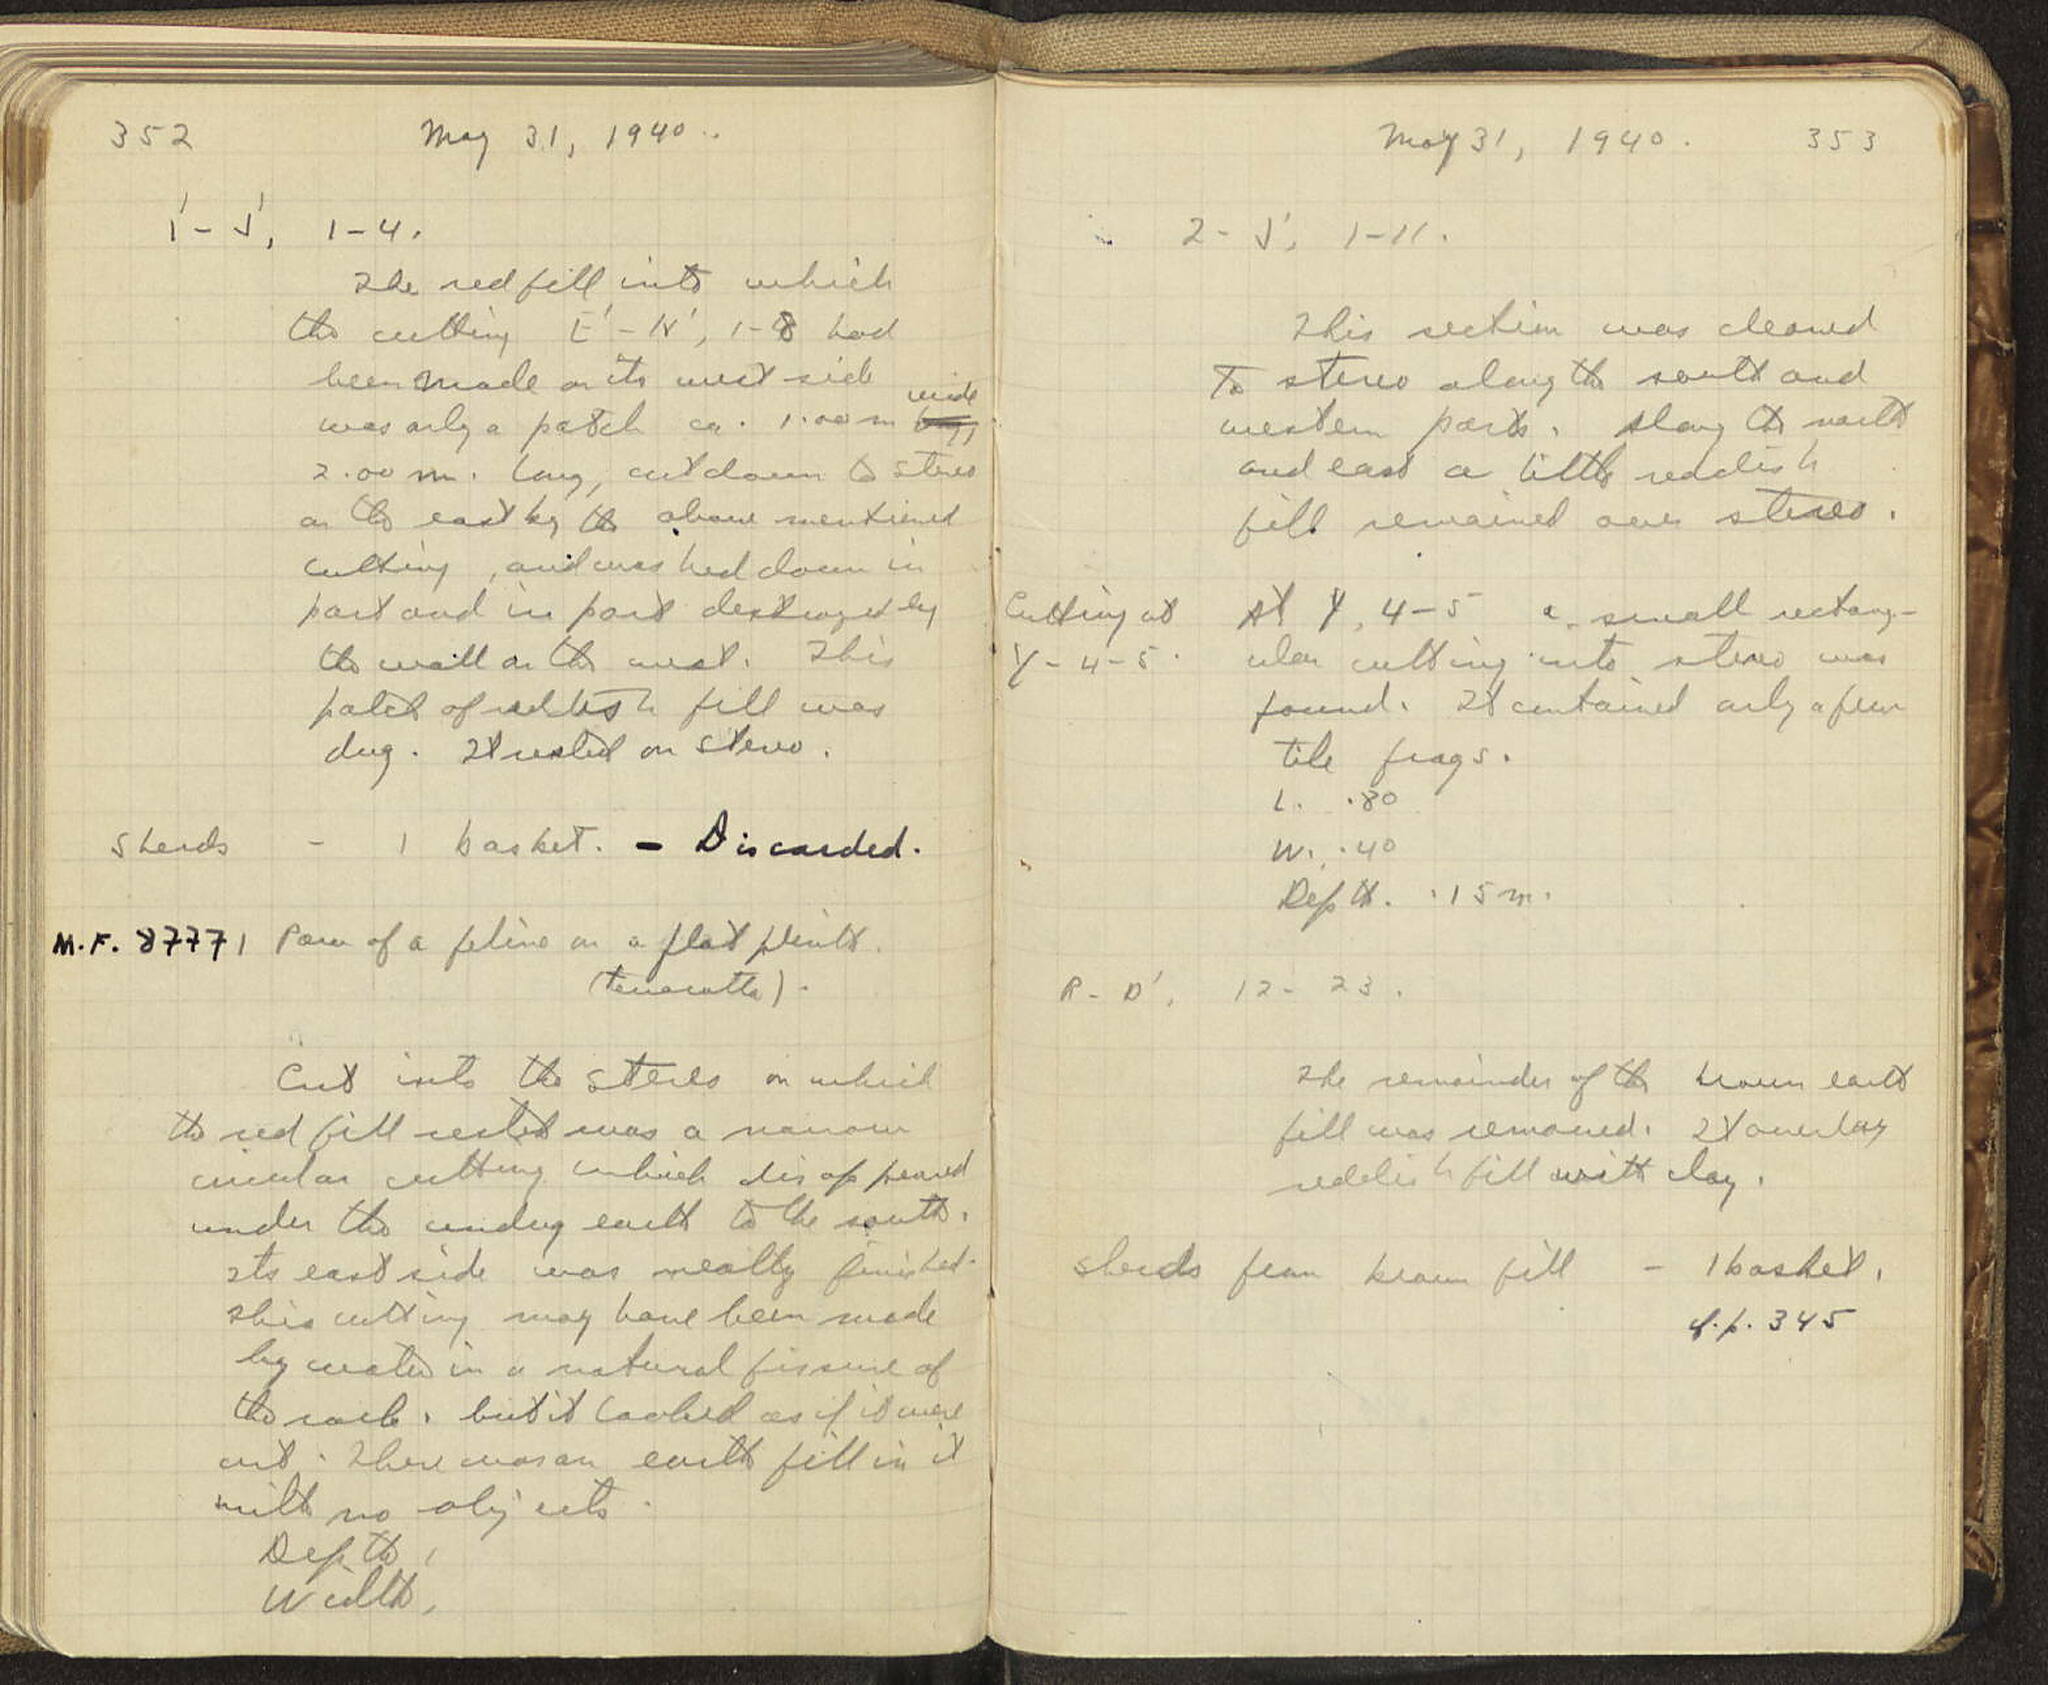 352 May 31, 1940.
I'-J', 1-4.
The red fill into which
the cutting E'-H', 1-8 had
been made on its west side
was only a patch ca. 1.00 m wide
2.00 m. long, cut down to stereo
on the east by the above mentioned
cutting, and washed down in
part and in part destroyed by
the wall on the west. This
patch of reddish fill was
dug. It rested on stereo.
Sherds - 1 basket. - Discarded.
M.F. 8777 | Paw of a feline on a flat plinth.
(terracotta).
Cut into the stereo on which
the red fill rested was a narrow
circular cutting which disappeared
under the undug earth to the south.
Its east side was neatly finished.
This cutting may have been made
by water in a natural fissure of
the rock. but it looked as if it were
cut. There was an earth fill in it
with no objects.
Depth,
Width,
May 31, 1940. 353
Z-J', 1-11.
This section was cleared
to stereo along the south and
western parts. Along the north
and east a little reddish
fill remained over stereo.
Cutting at
Y-4-5.
At Y, 4-5 a small rectang-
ular cutting into stereo was
found. It contained only a few
tile frags.
L. .80
W. .40
Depth. .15 m.
R-D', 12-23.
The remainder of the brown earth
fill was removed. It overlay
reddish fill with clay.
Sherds from brown fill - 1 basket.
cf. p. 345